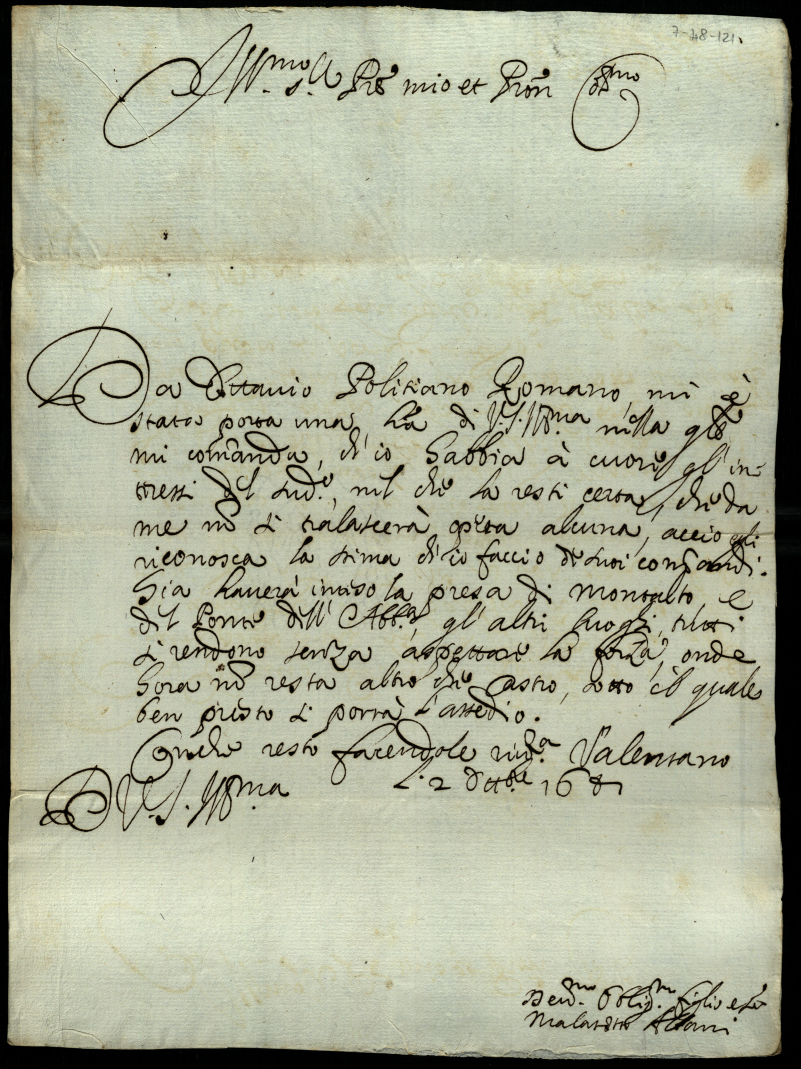 7-48-121.
Ill.mo S.r Pre mio et Pron Oss.mo
Da Ottavio Politiano Romano, mi è
stata porta una lra di V.S. Ill.ma nella qle
mi comanda, ch'io habbia à cuore gl'in=
teressi del sud.o, nel che la resti certa, che da
me nõ si tralascerà opera alcuna, acciò egli
riconosca la stima ch'io faccio de suoi comandi.
Già haverà inteso la presa di Montalto, e
del Ponte dell'Abb.a, gl'altri luoghi, tutti
si rendono senza aspettare la forza, onde
hora nõ resta altro che Castro, sotto il quale
ben presto si porrà l'assedio.
Con che resto facendole riv.a Valentano
L. 2 Ottbre 164i
D V.S. Ill.ma
Dev.mo Obblig.mo figlio e S.re
Malatesta Albani